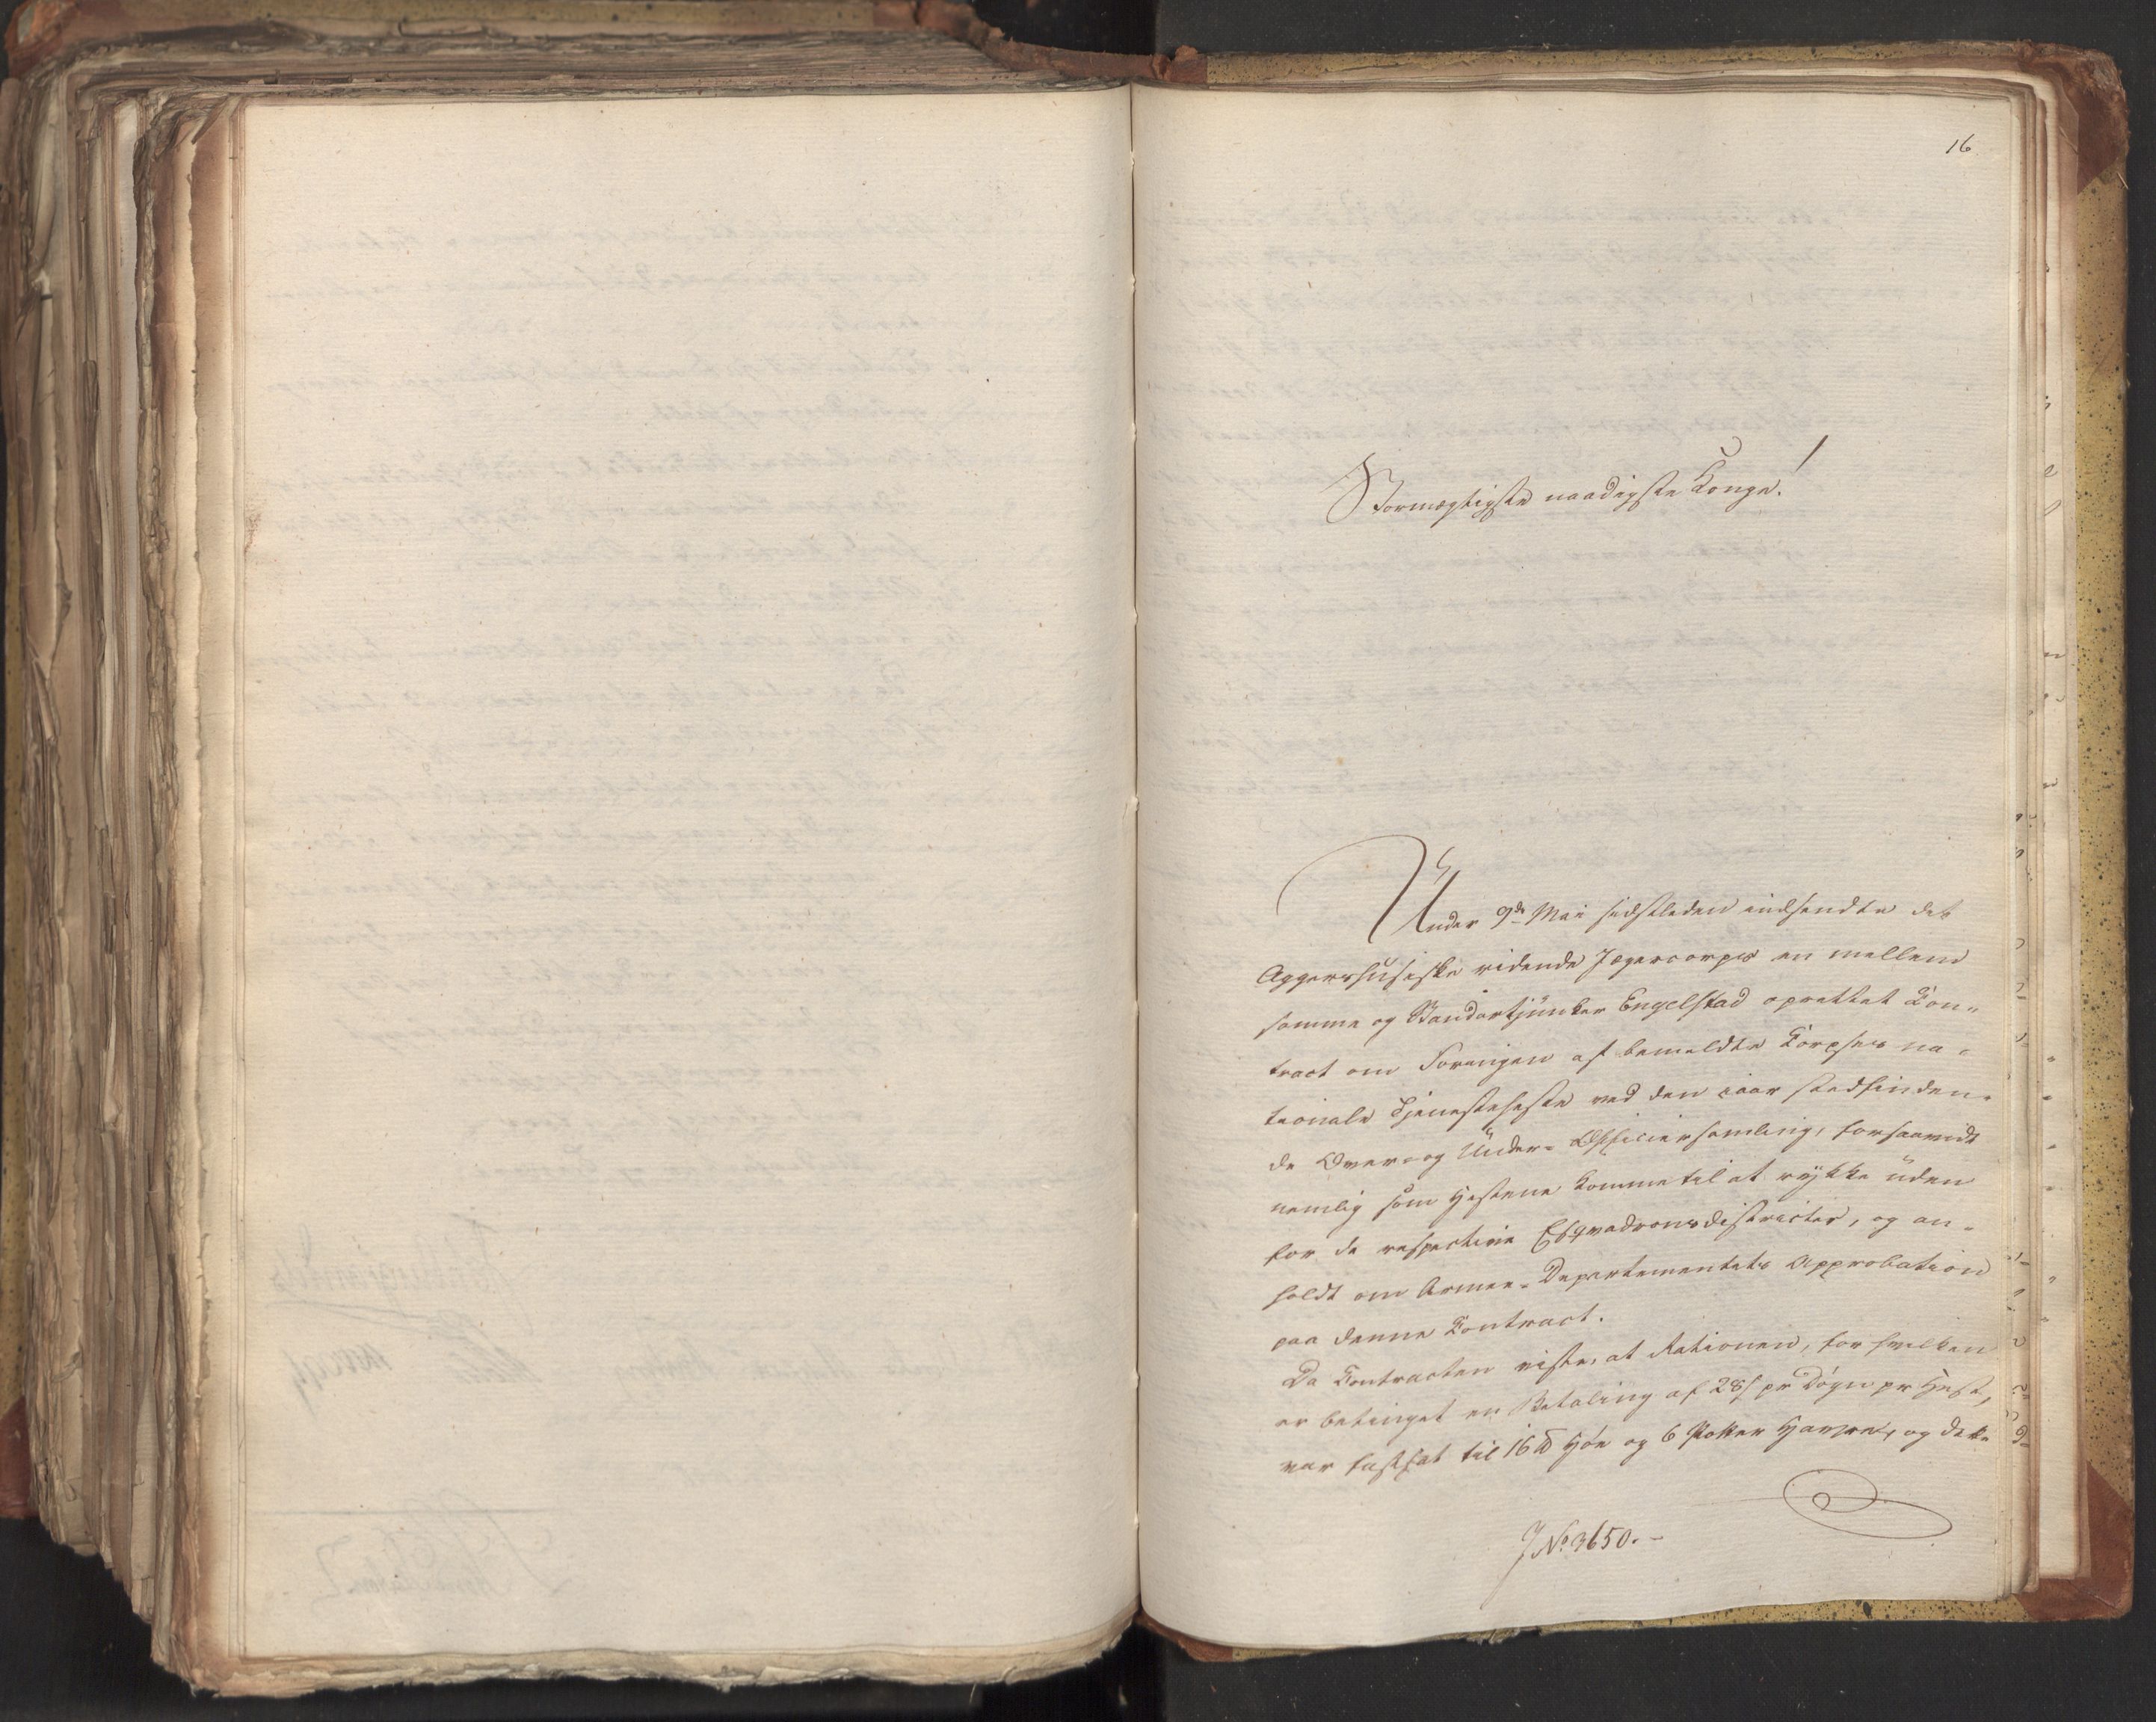 16
Stormægtigste naadigste Konge!
Under 9de Mai sidstleden indsendte det
Aggershusiske ridende Jægercorps en mellem
samme og Standartjunker Engelstad oprettet Con„
tract om Foringen af bemeldte Corpses na„
tionale Tjenesteheste ved den iaar stedfinden„
de Over- og Under-Officiersamling, forsaavidt
nemlig som Hestene komme til at rykke uden
for de respective Esqvadronsdistricter, og an„
holdt om Armee-Departementets Approbation
paa denne Contract.
Da Contracten viste, at Rationen, for hvilken
er betinget en Betaling af 28 s pr Døgn pr Hest,
var fastsat til 16 ℔ Høe og 6 Potter Havre, og dette
J No 3650.-